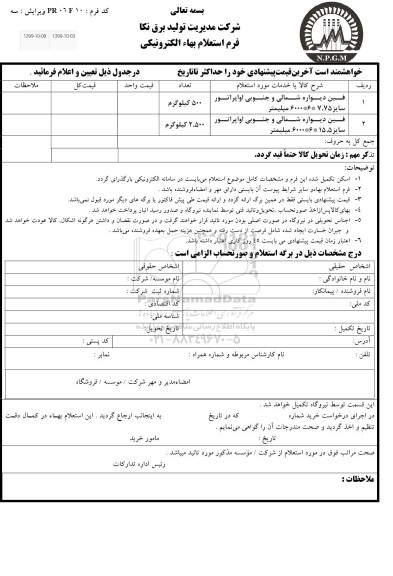 بسمه تعالی
کد فرم : PR ۰۶ F ۱۰ ویرایش : سه
شرکت مدیریت تولید برق نکا
فرم استعلام بهاء الکترونیکی
1399-10-08 1399-10-03
N.P.G.M
خواهشمند است آخرین قیمت پیشنهادی خود را حداکثر تا تاریخ در جدول ذیل تعیین و اعلام فرمائید .
ردیف شرح کالا یا خدمات مورد استعلام تعداد قیمت واحد قیمت کل ملاحظات
۱ فـــین دیـــواره شـــمالی و جنـــوبی اواپراتـــور سایز ۷.۷۵*۶*۶۰۰۰ میلیمتر ۵۰۰ کیلوگرم
۲ فـــین دیـــواره شـــمالی و جنـــوبی اواپراتـــور سایز ۱۵.۵*۶*۶۰۰۰ میلیمتر ۲.۵۰۰ کیلوگرم
جمع کل به حروف:
تذکر مهم : زمان تحویل کالا حتماً قید گردد.
توضیحات:
۱- امکان تکمیل شده این فرم و مشخصات کامل موضوع استعلام می‌بایست در سامانه الکترونیکی بارگذرای گردد.
۲- فرم استعلام بهاءو سایر شرایط پیوست آن بایستی دارای مهر و امضاءفروشنده باشد .
۳- قیمت پیشنهادی بایستی فقط در همین برگ ارائه گردد و ارائه قیمت طی پیش فاکتور یا برگه های دیگر مورد قبول نمی‌باشد.
۴- بهای کالا پس از اخذ صورتحساب ،تحویل و تائید فنی توسط نماینده نیروگاه و صدور رسید انبار پرداخت خواهد شد .
۵- اجناس تحویلی در نیروگاه در صورت اصلی بودن مورد تائید قرار خواهند گرفت و در صورت نقصان و داشتن هرگونه اشکال، کالا عودت خواهد شد
و جبران خسارت ایجاد شده شامل فرصت از دست رفته و همچنین هزینه حمل بعهده فروشنده می‌باشد .
۶- اعتبار زمان قیمت پیشنهادی می بایست ۴۵ روز کاری اعتبار داشته باشد.
درج مشخصات ذیل در برگه استعلام و صورتحساب الزامی است :
اشخاص حقیقی اشخاص حقوقی
نام و نام خانوادگی : نام موسسه/ شرکت :
نام فروشنده / پیمانکار: شماره ثبت شرکت :
کد ملی: کد اقتصادی :
شناسه ملی:
تاریخ تکمیل : تاریخ تحویل:
آدرس: کد پستی :
تلفن : نام کارشناس مربوطه و شماره همراه : نمابر :
ParsNamadData
۰۲۱-۸۸۳۴۹۶۷۰-۵
امضاءمدیر و مهر شرکت / موسسه / فروشگاه
این قسمت توسط نیروگاه تکمیل خواهد شد .
در اجرای درخواست خرید شماره که در تاریخ به اینجانب ارجاع گردید . این استعلام بهاء در کمال دقت
تنظیم و اخذ گردید و صحت مندرجات آن را گواهی می‌نمایم .
تاریخ : مامور خرید
صحت مراتب فوق در مورد استعلام از شرکت / مؤسسه مذکور مورد تائید میباشد .
رئیس اداره تدارکات
ملاحظات :